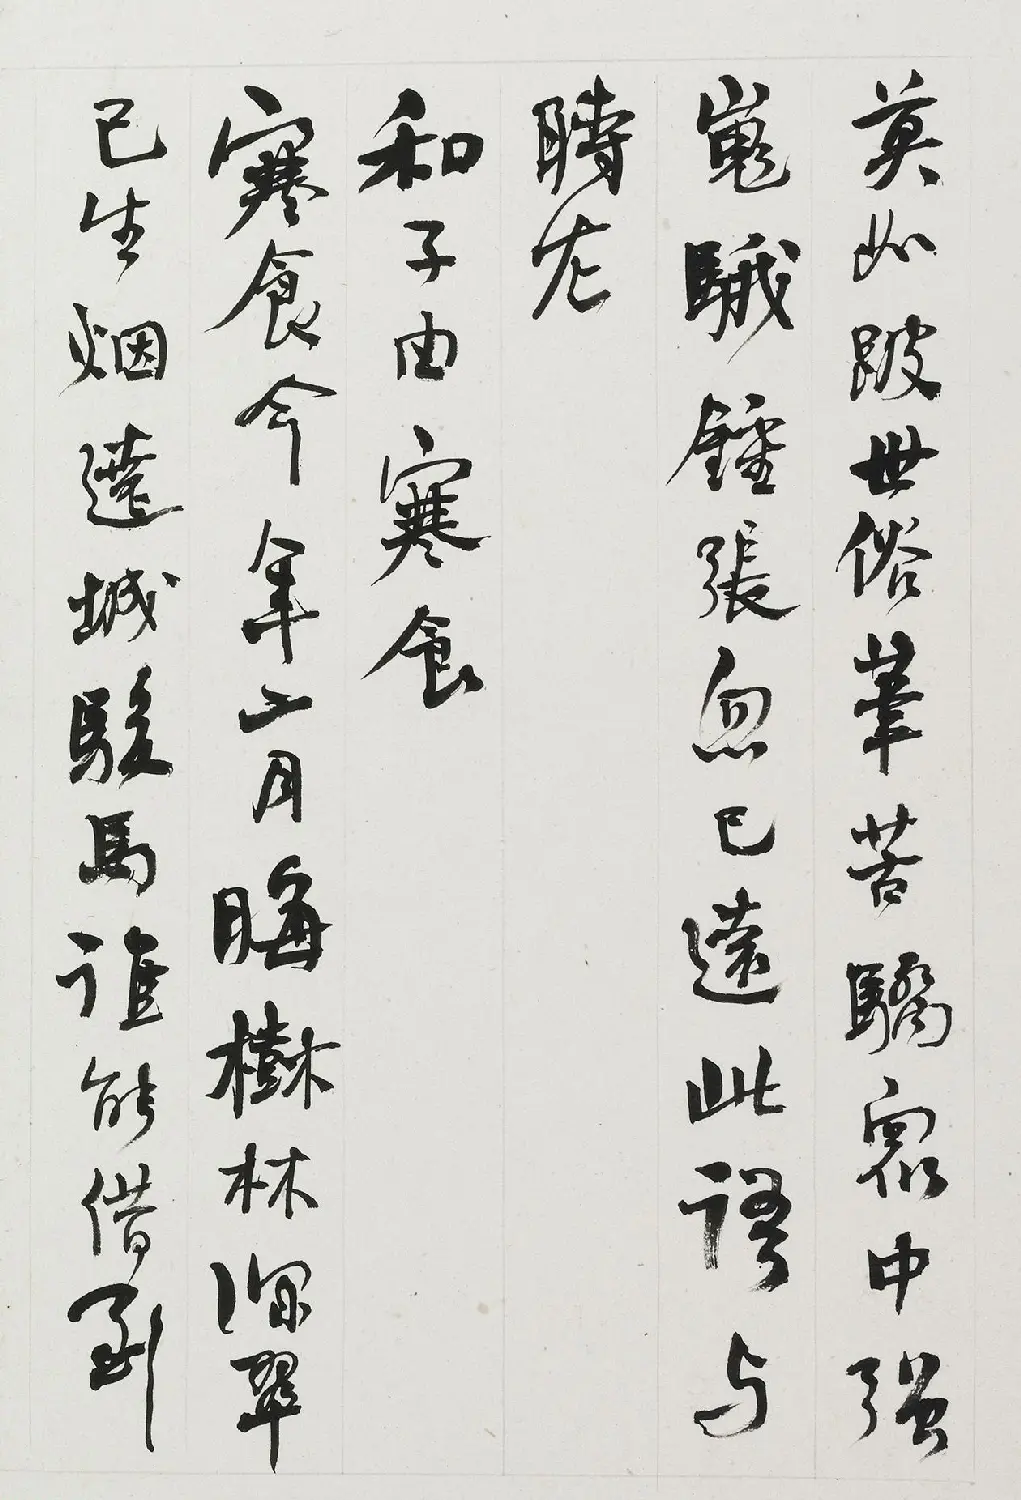 莫如跛世俗筆苦驕眾中強
嵬騀鍾張忽已遠此語与
時左
和子由寒食
寒食今年二月晦樹林深翠
已生烟遶城駿馬誰能借到